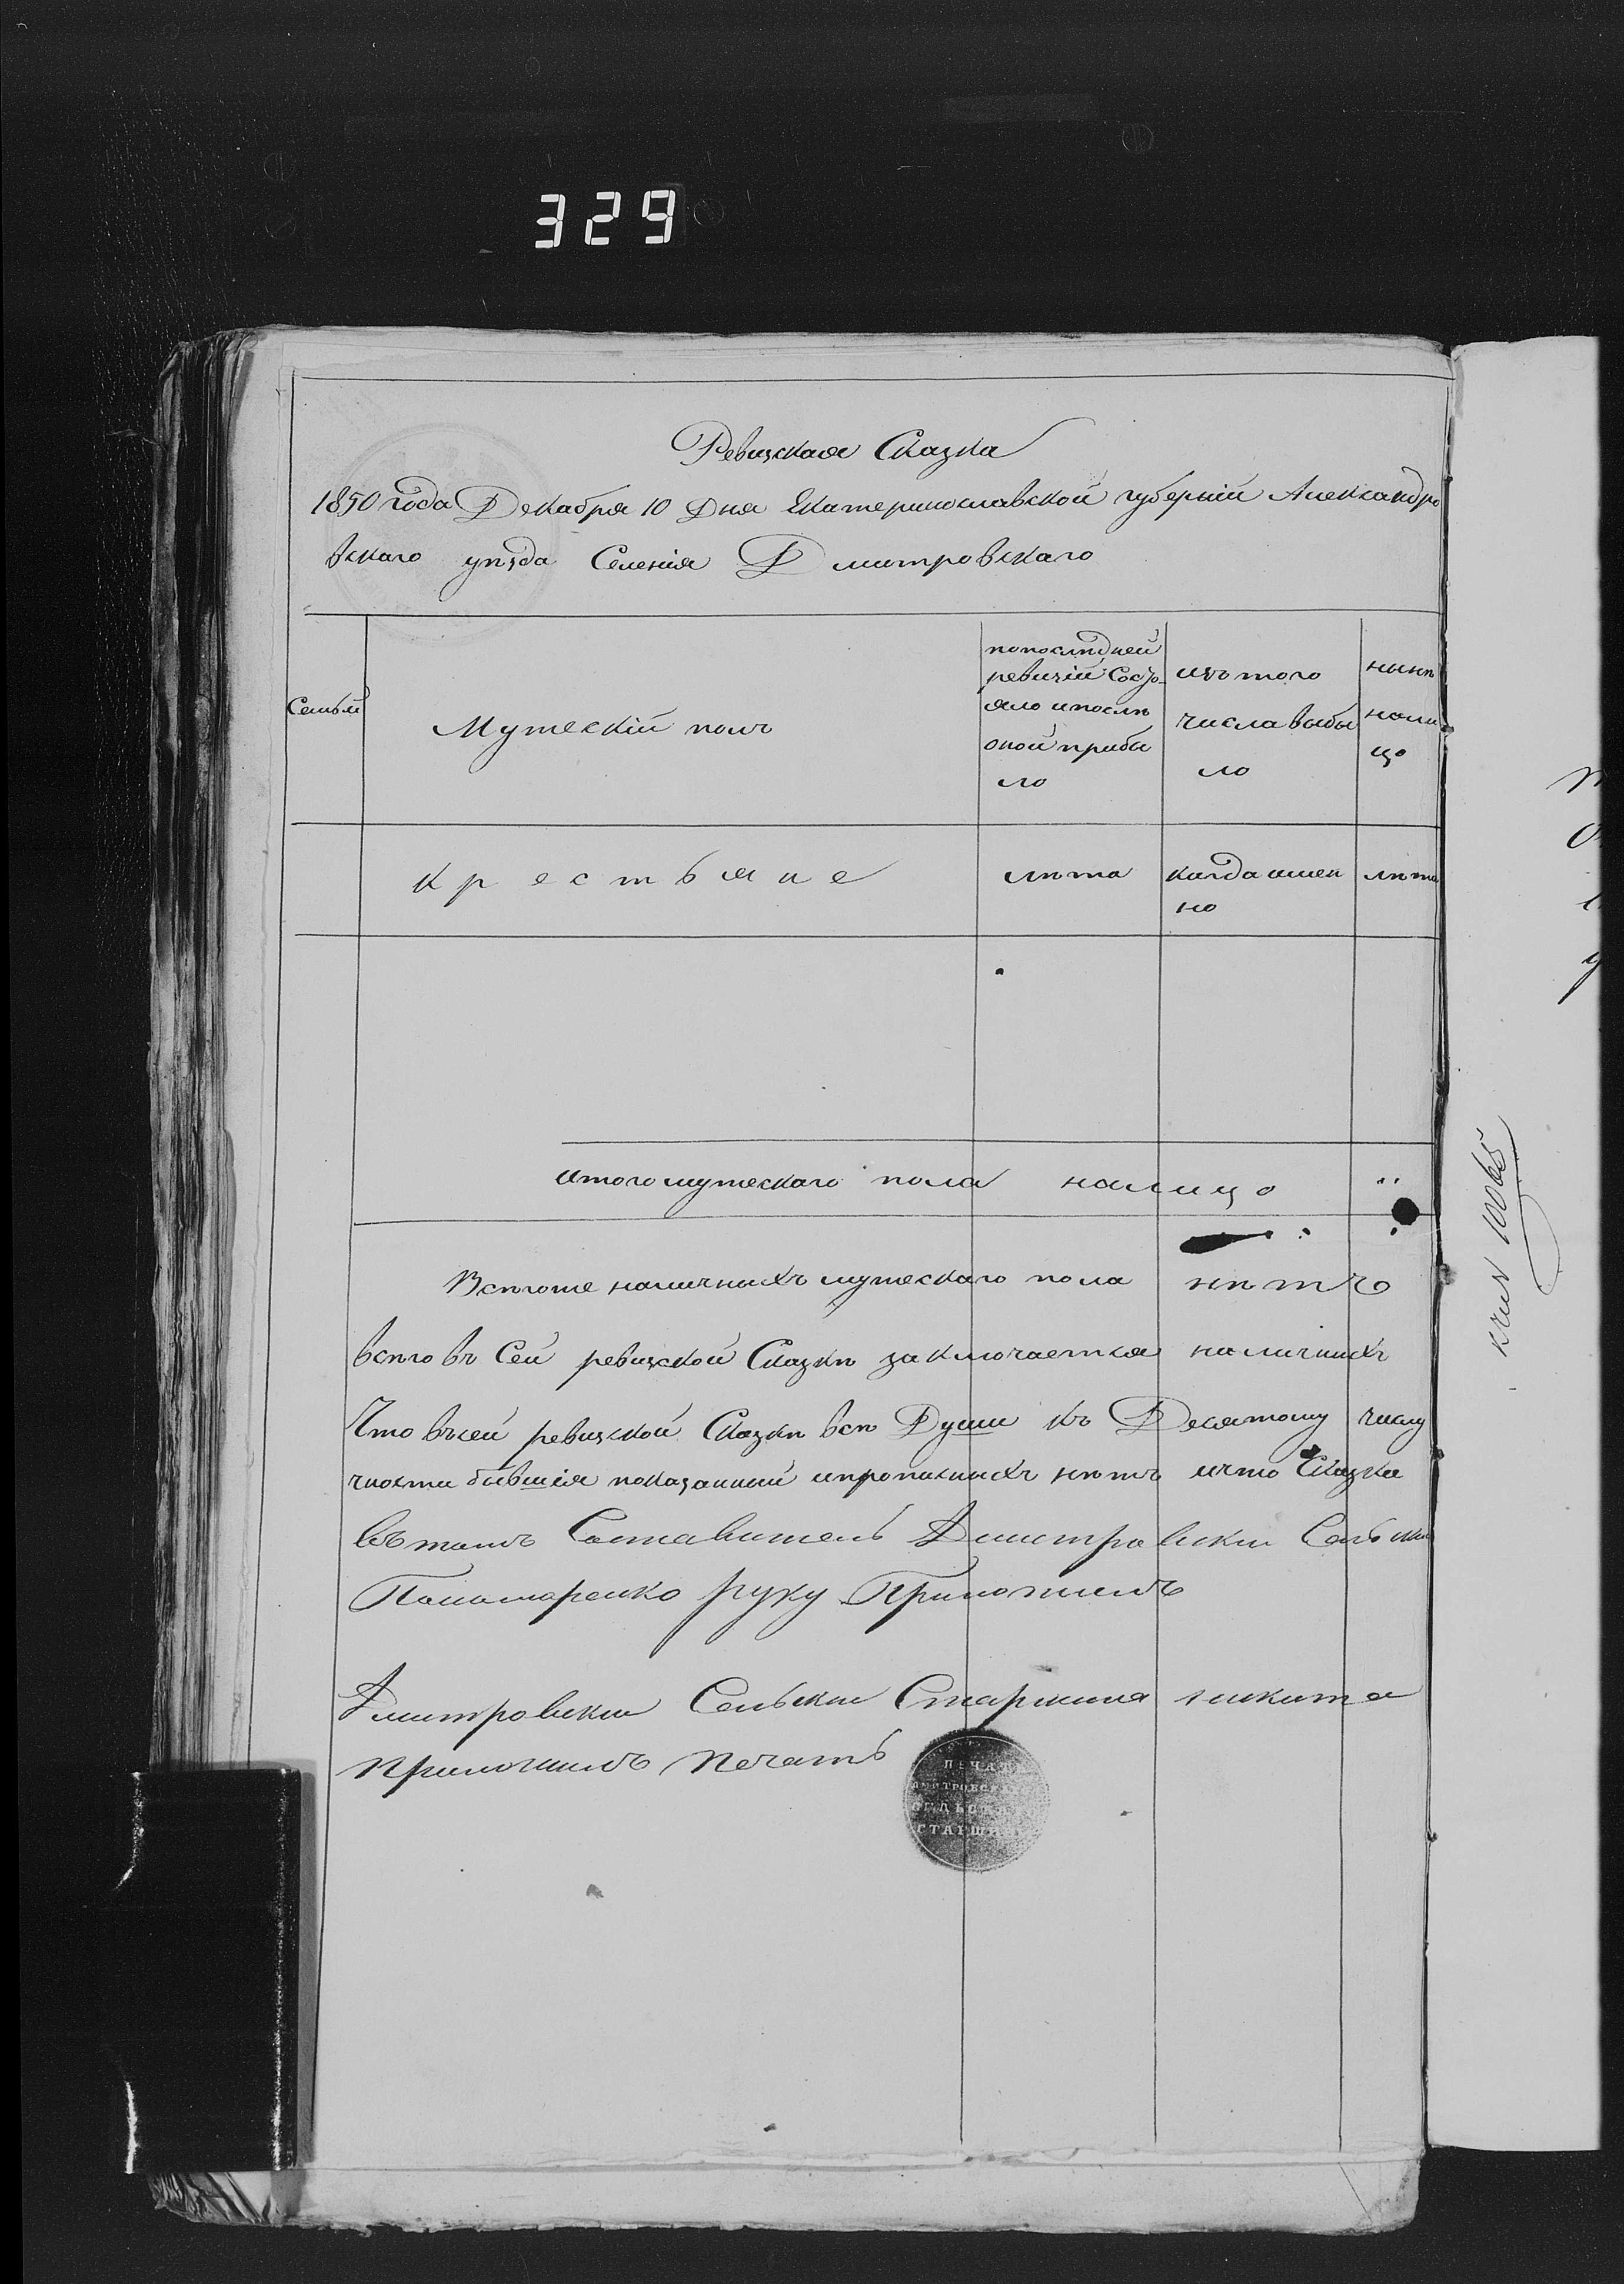 329
Ревизская Сказка
1850 года Декабря 10 Дня Екатеринославской губерніи Александро
вскаго уѣзда Селенія Дмитровскаго
Семьи
Мужескій полъ
попослѣдней
ревизіи Состо-
яло ипослѣ
оной прибы
ло
изъ того
числа выбы
ло
нынѣ
нали
цо
крестьяне
лѣта
когда имен
но
лѣта
итого мужескаго пола налицо
Всѣгоже наличныхъ мужескаго пола нѣтъ
всѣго въ Сей ревизской Сказкѣ заключается наличныхъ
Что въсей ревизской Сказкѣ всѣ Души къ Десятому числу
бывшія показанныи ипрописныхъ нѣтъ ичто Сказка
въ томъ Составитель Дмитровски Сельски
Пономаренко руку Приложилъ
Дмитровски Сельски Старшина никита
приложилъ Печать
ПЕЧАТЬ
ДМИТРОВСК
СЕЛЬСК
СТАРШИ